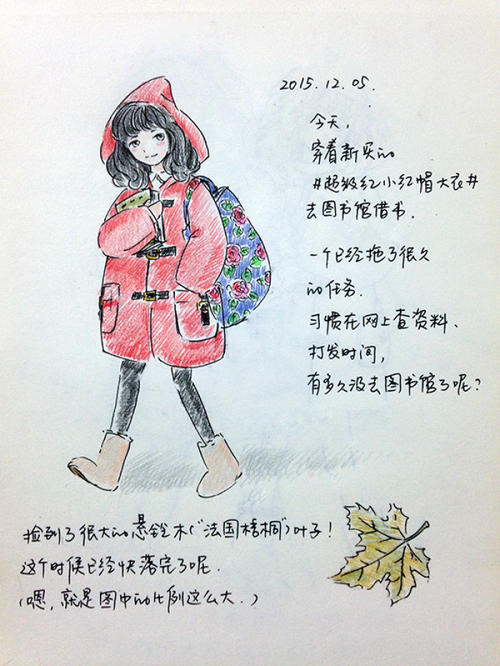 2015.12.05.
今天,
穿着新买的
#超级红小红帽大衣#
去图书馆借书.
一个已经拖了很久
的任务.
习惯在网上查资料、
打发时间,
有多久没去图书馆了呢?
捡到了很大的悬铃木(“法国梧桐”)叶子!
这个时候已经快落完了呢.
(嗯, 就是图中的比例这么大.)